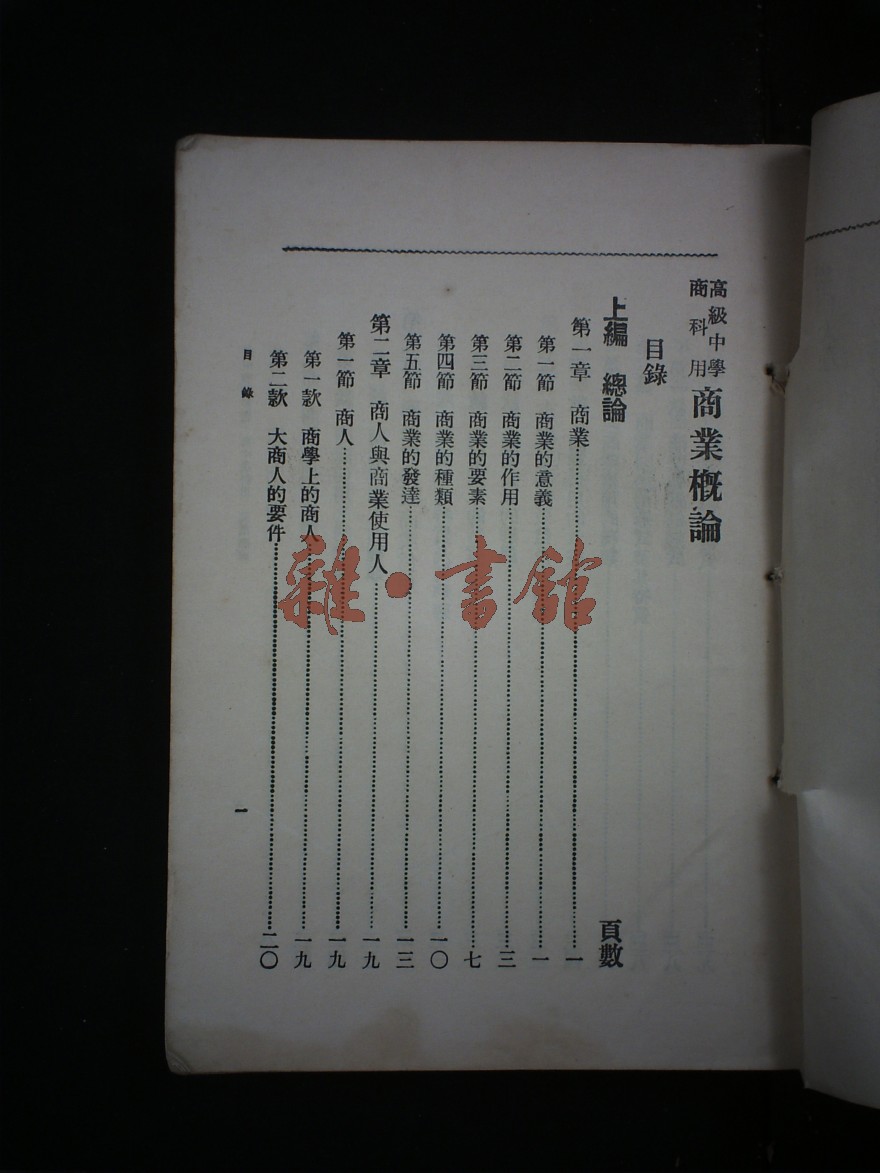 高級中學
商科用
商業概論
目錄
上編　總論　頁數
第一章　商業……一
第一節　商業的意義……一
第二節　商業的作用……三
第三節　商業的要素……七
第四節　商業的種類……一〇
第五節　商業的發達……一三
第二章　商人與商業使用人……一九
第一節　商人……一九
第一款　商學上的商人……一九
第二款　大商人的要件……二〇
目錄　一
雜·書館